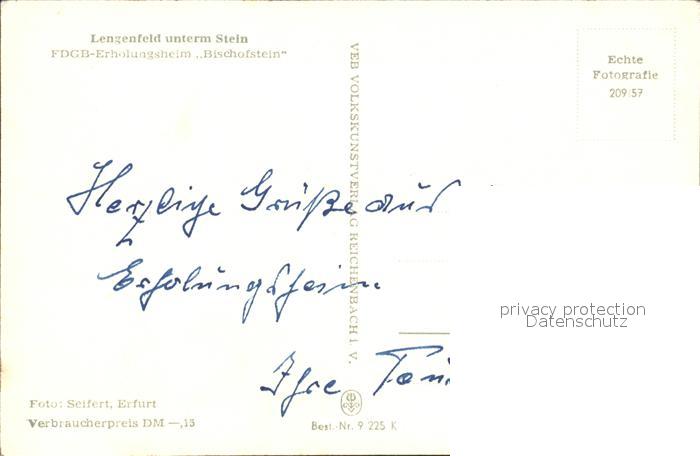 Lengenfeld unterm Stein
FDGB-Erholungsheim „Bischofstein“
Echte
Fotografie
209/57
VEB VOLKSKUNSTVERLAG REICHENBACH I. V.
Herzliche Grüße aus
Erholungsheim
Ihre
privacy protection
Datenschutz
Foto: Seifert, Erfurt
Verbraucherpreis DM —,15
Best.-Nr. 9 225 K